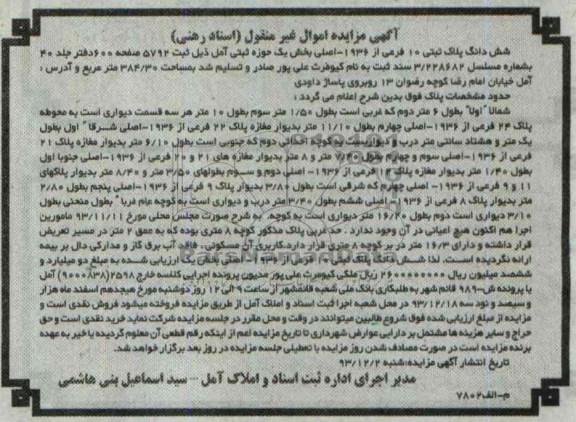 آگهی مزایده اموال غیر منقول (اسناد رهنی)
شش دانگ پلاک ثبتی ۱۰ فرعی از ۱۹۳۶-اصلی بخش یک حوزه ثبتی آمل ذیل ثبت ۵۷۹۲ صفحه ۶۰۰ دفتر جلد ۴۰
بشماره مسلسل ۳/۲۲۸۶۸۲ سند ثبت به نام کیومرث علی پور صادر و تسلیم شد بمساحت ۳۸۴/۳۰ متر مربع و آدرس :
آمل خیابان امام رضا کوچه رضوان ۱۳ روبروی پاساژ داودی
حدود مشخصات پلاک فوق بدین شرح اعلام می گردد :
شمالا "اولا" بطول ۶ متر دوم که غربی است بطول ۱/۵۰ متر سوم بطول ۱۰ متر هر سه قسمت دیواری است به محوطه
پلاک ۲۴ فرعی از ۱۹۳۶-اصلی چهارم بطول ۱۱/۱۰ متر بدیوار مغازه پلاک ۲۲ فرعی از ۱۹۳۶-اصلی شرقا " اول بطول
یک متر و هشتاد سانتی متر درب و دیواریست به کوچه دوم که جنوبی است بطول ۶/۱۰ متر بدیوار مغازه پلاک ۲۱
فرعی از ۱۹۳۶-اصلی سوم و چهارم بطول ۷/۷۰ متر و ۸ متر بدیوار مغازه های ۲۱ و ۲۰ فرعی از ۱۹۳۶-اصلی جنوبا اول
بطول ۱/۴۰ متر بدیوار مغازه پلاک ۱۲ فرعی از ۱۹۳۶- اصلی دوم و سوم بطولهای ۳/۵۰ متر و ۸/۴۰ متر بدیوار پلاکهای
۱۱ و ۹ فرعی از ۱۹۳۶- اصلی چهارم که شرقی است بطول ۳/۸۰ بدیوار پلاک ۹ فرعی از ۱۹۳۶-اصلی پنجم بطول ۲/۸۰
متر بدیوار پلاک ۸ فرعی از ۱۹۳۶- اصلی ششم بطول ۳/۴۰ متر درب و دیواری است به کوچه عام غربا " بطول منحنی بطول
۳/۱۰ دیواری است دوم بطول ۱۶/۲۰ متر دیواری است به کوچه. به شرح صورت مجلس محلی مورخ ۹۳/۱۱/۱۱ مامورین
اجرا هم اکنون هیچ اعیانی در آن وجود ندارد . حد غربی پلاک مذکور کوچه ۸ متری بوده که به عمق ۲ متر در مسیر تعریض
قرار داشته و دارای ۱۶/۳ متر در بر کوچه ۸ متری قرار دارد.کاربری آن مسکونی. فاقد آب برق گاز و مدارکی دال بر بیمه
ارائه نگردیده است. لذا شش دانگ پلاک ثبتی ۱۰ فرعی از ۱۹۳۶ - اصلی بخش یک ثبت آمل ارزیابی شده به مبلغ دو میلیارد و
ششصد میلیون ریال ۲۶۰۰۰۰۰۰۰۰ ریال ملکی کیومرث علی پور مدیون پرونده اجرایی کلاسه خارج ۲۵۹۸(۹۰۰۰۸۳۸) آمل
با پرونده ش-۹۸۹ قائم شهر به طلبکاری بانک ملی شعبه قائمشهر از ساعت ۹ الی ۱۲ روز دوشنبه مورخ هیجدهم اسفند ماه هزار
و سیصد و نود سه ۹۳/۱۲/۱۸ در محل شعبه اجرا ثبت اسناد و املاک آمل از طریق مزایده فروخته میشود فروش نقدی است و
مزایده از مبلغ ارزیابی شده فوق شروع طالبین میتوانند در وقت و محل مقرر در جلسه مزایده شرکت نماید خرید نقدی است و حق
حراج و سایر هزینه ها مشتمل بر دارایی عوارض شهرداری تا تاریخ مزایده اعم از اینکه رقم قطعی آن معلوم گردیده یا خیر به عهده
برنده مزایده است در صورت مصادف شدن روز مزایده با تعطیلی جلسه مزایده در روز بعد برگزار خواهد شد.
تاریخ انتشار آگهی مزایده:شنبه ۹۳/۱۲/۲
مدیر اجرای اداره ثبت اسناد و املاک آمل – سید اسماعیل بنی هاشمی
م-الف ۷۸۰۲